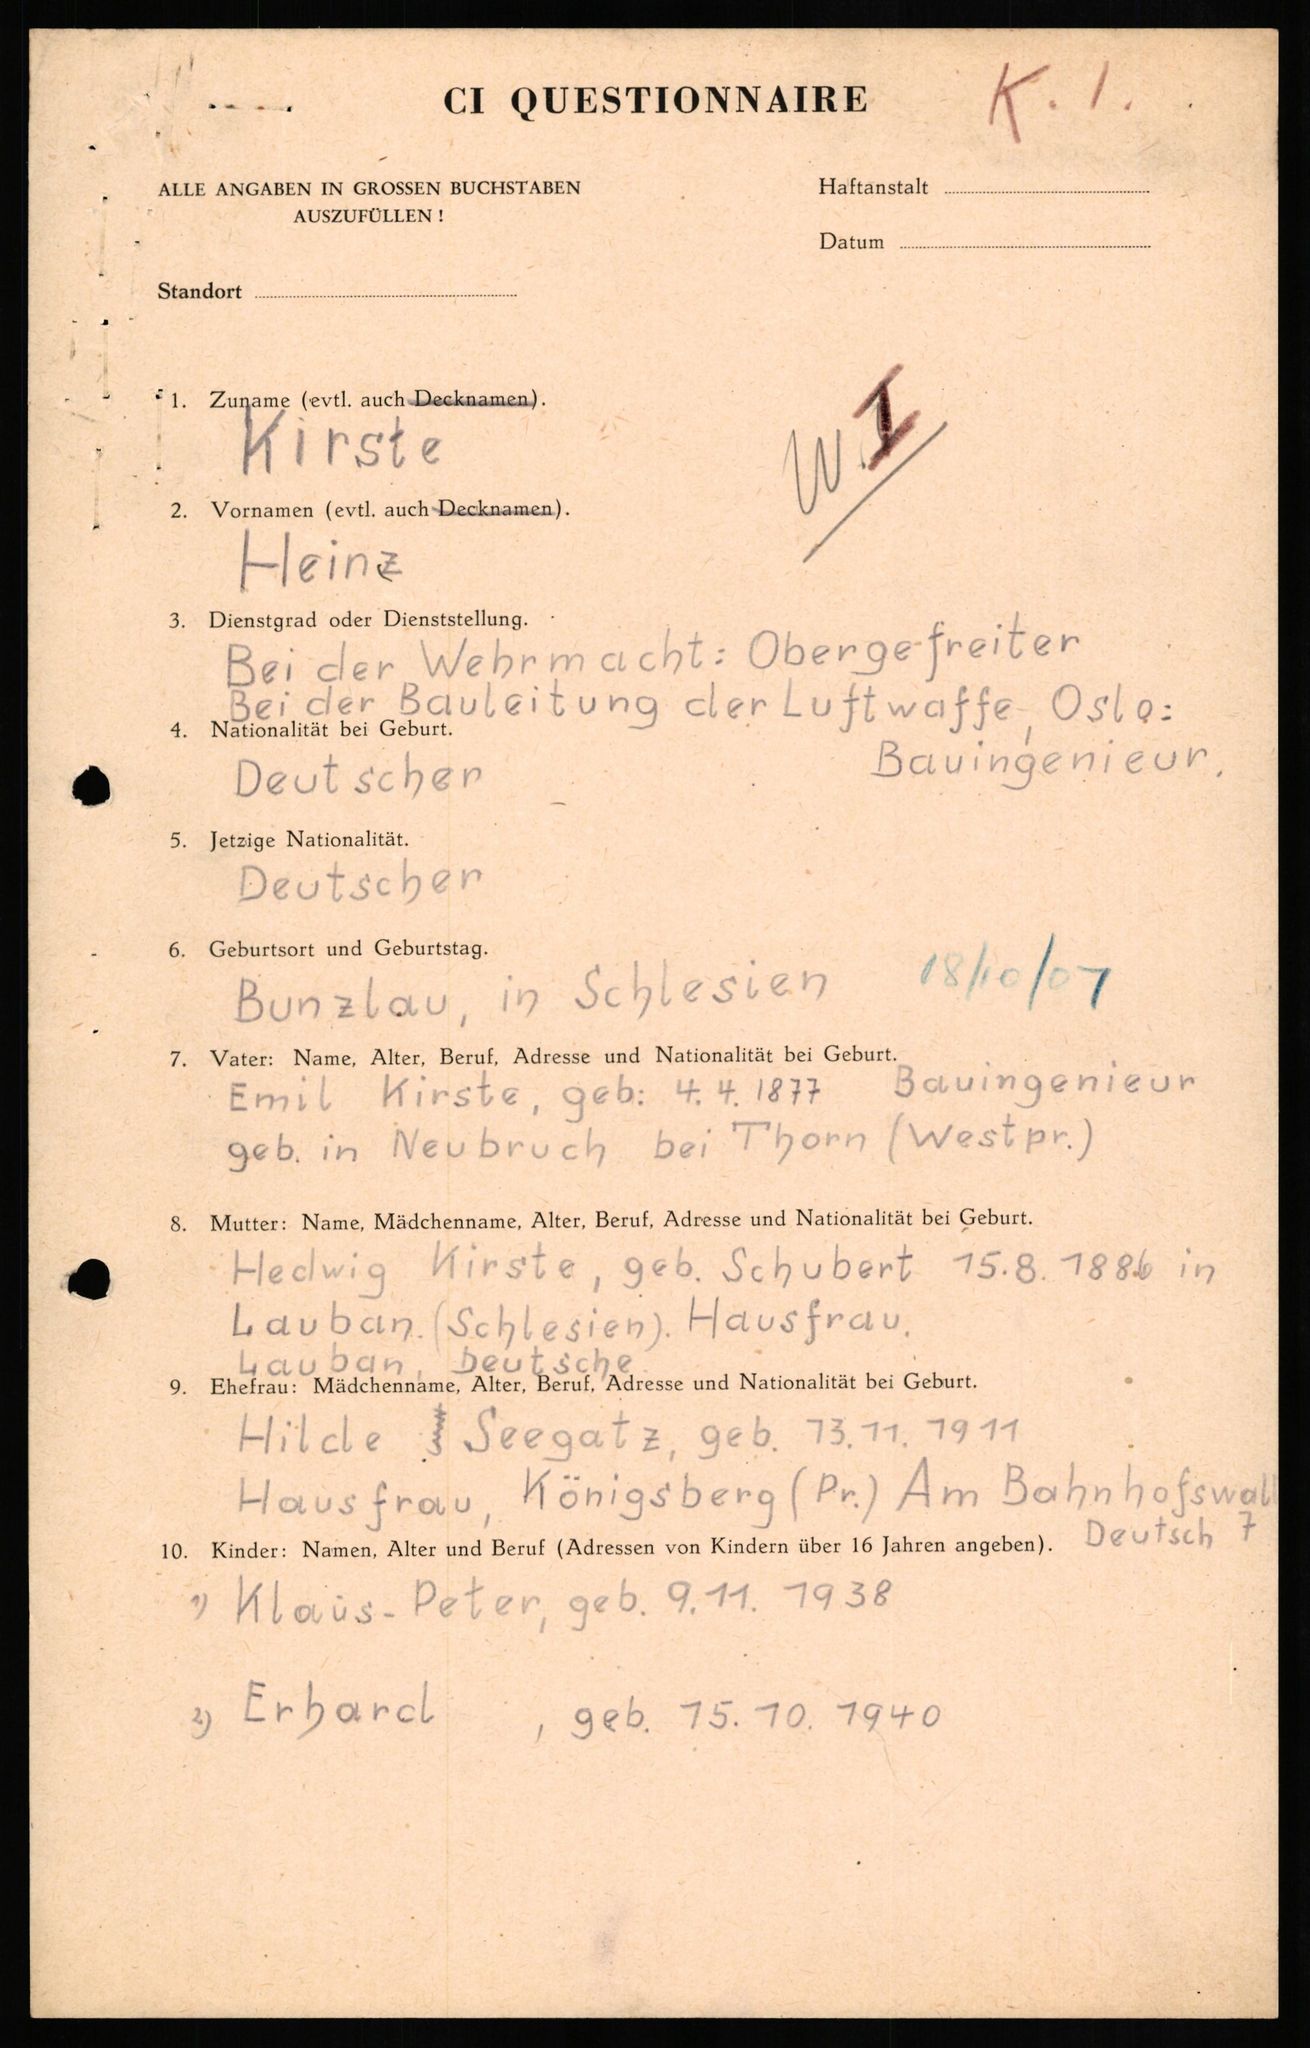 CI QUESTIONNAIRE
K. 1.
ALLE ANGABEN IN GROSSEN BUCHSTABEN
AUSZUFÜLLEN !
Haftanstalt
Datum
Standort
1. Zuname (evtl. auch Decknamen).
Kirste
W. I
2. Vornamen (evtl. auch Decknamen).
Heinz
3. Dienstgrad oder Dienststellung.
Bei der Wehrmacht: Obergefreiter
Bei der Bauleitung der Luftwaffe, Oslo:
Bauingenieur.
4. Nationalität bei Geburt.
Deutscher
5. Jetzige Nationalität.
Deutscher
6. Geburtsort und Geburtstag.
Bunzlau, in Schlesien 18/10/07
7. Vater: Name, Alter, Beruf, Adresse und Nationalität bei Geburt.
Emil Kirste, geb: 4. 4. 1877 Bauingenieur
geb. in Neubruch bei Thorn (Westpr.)
8. Mutter: Name, Mädchenname, Alter, Beruf, Adresse und Nationalität bei Geburt.
Hedwig Kirste, geb. Schubert 15. 8. 1886 in
Lauban. (Schlesien). Hausfrau.
Lauban, Deutsche
9. Ehefrau: Mädchenname, Alter, Beruf, Adresse und Nationalität bei Geburt.
Hilde Seegatz, geb. 13. 11. 1911
Hausfrau, Königsberg (Pr.) Am Bahnhofswall
Deutsch 7
10. Kinder: Namen, Alter und Beruf (Adressen von Kindern über 16 Jahren angeben).
1) Klaus-Peter, geb. 9. 11. 1938
2) Erhard , geb. 15. 10. 1940